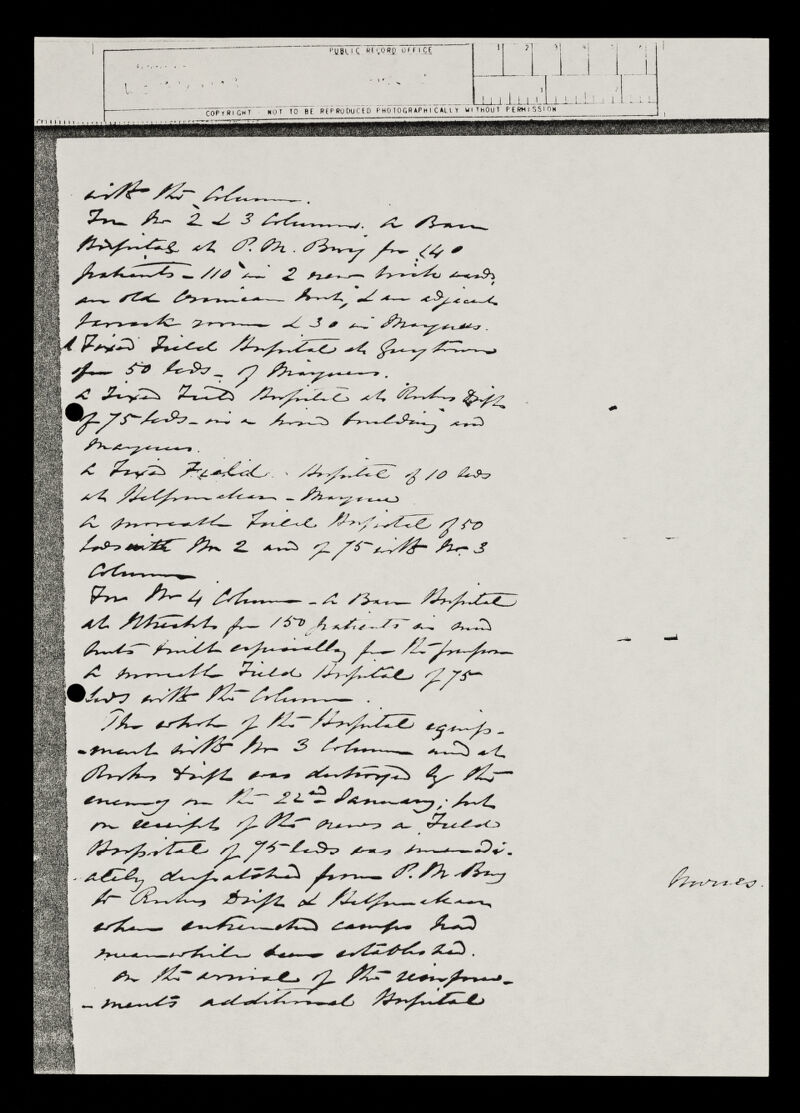 PUBLIC RECORD OFFICE
1 2 3 4 5 6
1 2
COPYRIGHT NOT TO BE REPRODUCED PHOTOGRAPHICALLY WITHOUT PERMISSION
with the Column.
For No 2 & 3 Columns. A Base
Hospital at P.M. Burg for 140
patients - 110 in 2 new brick wards,
an old Crimean hut, & an adjacent
barrack room & 30 in Marquees.
A Fixed Field Hospital at Greytown
for 50 beds - of Marquees.
A Fixed Field Hospital at Rorkes Drift
of 75 beds - in a building and
Marquees.
A Fixed Field Hospital of 10 beds
at Helpmakaar - Marquee
A moveable Field Hospital of 50
beds with No 2 and of 75 with No. 3
Column
For No 4 Column - A Base Hospital
at Utrecht for 150 patients in mud
huts built especially for the purpose
A moveable Field Hospital of 75
beds with the Column.
The whole of the Hospital equip-
-ment with No 3 Column and at
Rorkes Drift was destroyed by the
enemy on the 22nd January; but
on receipt of the news a Field
Hospital of 75 beds was immedi-
ately despatched from P.M. Burg
to Rorkes Drift & Helpmakaar
where entrenched camps had
meanwhile been established.
Nurses.
On the arrival of the reinforce-
-ments additional Hospital